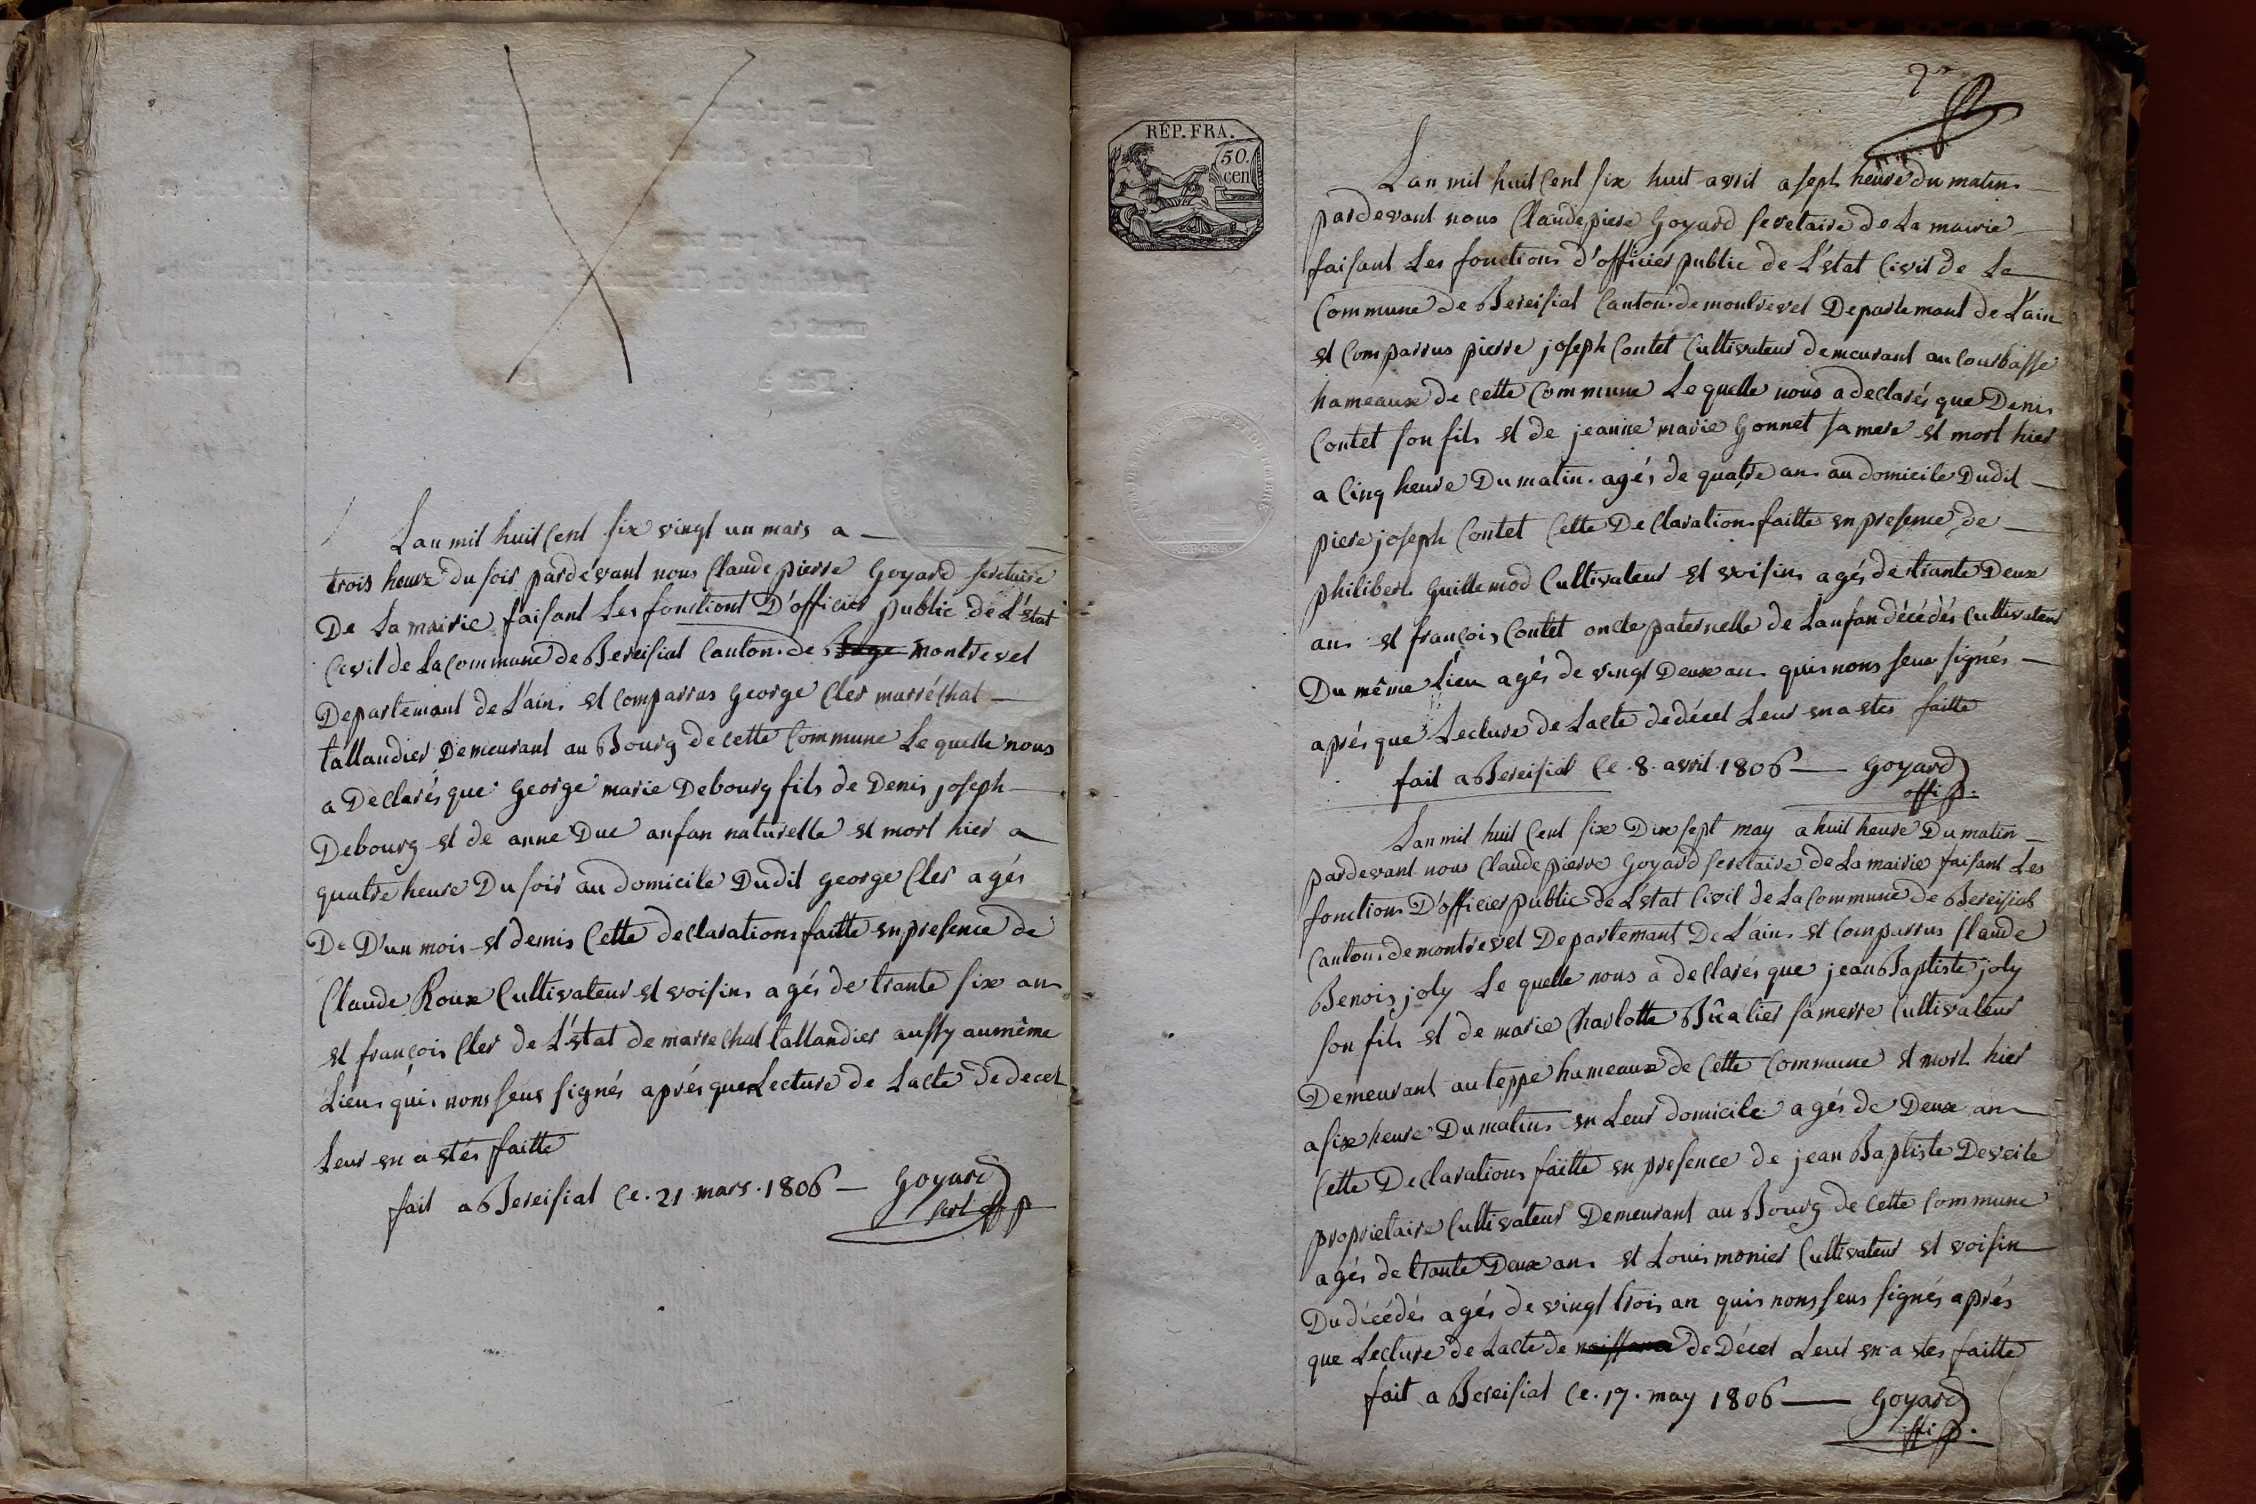 Lan mil huit Cent six vingt un mars a
trois heure du soir pardevant nous Claude pierre Goyard secretaire
De La mairie faisant Les fonctions D'officier public de L'état
Civil de La Commune de Bereisiat Canton de Bage montrevel
Departemant de L'ain et comparrus George Cler marréchal
tallandier Demeurant au Bourg de cette Commune Le quelle nous
a Déclarés que George marie Debourg fils de Denis joseph
Debourg et de anne Duc anfan naturelle et mort hier a
quatre heure Du soir au domicile Dudit george Cler agés
De D'un mois et demis Cette declaration faitte en presence de
Claude Roux Cultivateur et voisin agés de trante six an
et françois Cler de L'état de marrechal tallandier aussy au même
Lieu qui nons seus signés aprés que Lecture de Lacte de decet
Leur en a etés faitte
fait a Bereisiat Ce. 21 mars. 1806 Goyard
7
RÉP. FRA.
50.
cen
Lan mil huit Cent six huit avril a sept heure du matin
pardevant nous Claude piere Goyard secretaire de La mairie
faisant Les fonctions d'officier public de L'état Civil de La
Commune de Bereisiat Canton de montrevel Departemant de L'ain
et Comparrus pierre joseph Contet Cultivateur demeurant au Courbasse
hameaux de cette Commune Le quelle nous a declarés que Denis
Contet son fils et de jeanne marie Gonnet sa mere et mort hier
a Cinq heure Du matin. agés de quatre an au domicile Dudit
piere joseph Contet Cette Declaration faitte en presence de
philibert Guillemod Cultivateur et voisin agés de trante Deux
an et françois Contet oncle paternelle de Lanfan décédés Cultivateur
Du même Lieu agés de vingt Deux an qui nons seus signés
aprés que Lecture de Lacte de décet Leur en a etes faitte
fait a Bereisiat Ce. 8. avril. 1806 Goyard
offi p.
Lan mil huit Cent six Dix sept may a huit heure Du matin
pardevant nous Claude pierre Goyard secretaire de La mairie faisant Les
fonctions D'officier public de L'état Civil de La Commune de Bereisiat
Canton de montrevel Departemant De L'ain et Comparrus Claude
Benois joly Le quelle nous a declarés que jean Baptiste joly
son fils et de marie Charlotte sa merre Cultivateur
Demeurant au teppe hameaux de Cette Commune et mort hier
a six heure Du matin en Leur domicile agés de Deux an
Cette Declaration faitte en presence de jean Baptiste
proprietaire Cultivateur Demeurant au Bourg de Cette Commune
agés de trante Deux an et Louis monier Cultivateur et voisin
Du décédés agés de vingt trois an qui nons seus signés aprés
que Lecture de Lacte de naissance de Décet Leur en a etes faitte
fait a Bereisiat Ce. 17. may 1806 Goyard
offi p.